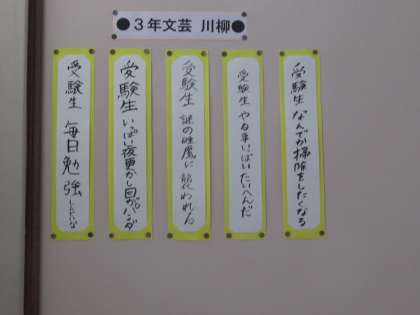 ●3年文芸 川柳●
受験生 なんでか掃除をしたくなる
受験生 やる事いっぱいたいへんだ
受験生 謎の睡魔に襲われる
受験生 いっぱい夜更かし目がパンダ
受験生 毎日勉強